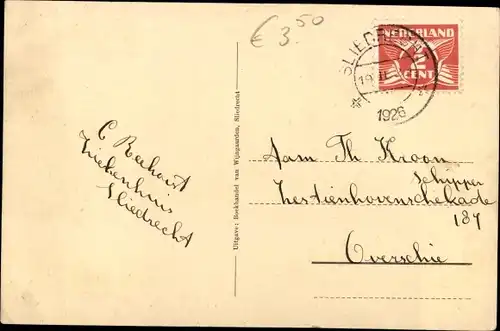 € 3.50
NEDERLAND
2
CENT
SLIEDRECHT
19 II
1926
C Reehorst
Ziekenhuis
Sliedrecht
Uitgave: Boekhandel van Wijngaarden, Sliedrecht
Aan Th Kroon
Schipper
Zestienhovenschekade
187
Overschie